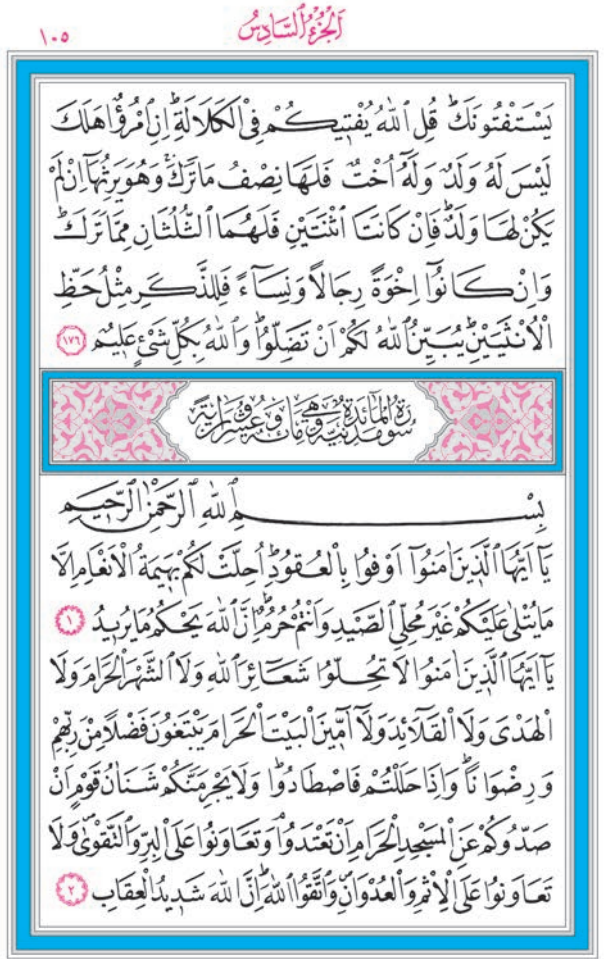 اَلْجُزْءُ السَّادِسُ
١٠٥
يَسْتَفْتُونَكَۜ قُلِ اللّٰهُ يُفْت۪يكُمْ فِي الْكَلَالَةِۜ اِنِ امْرُؤٌا هَلَكَ
لَيْسَ لَهُ وَلَدٌ وَلَهُٓ اُخْتٌ فَلَهَا نِصْفُ مَا تَرَكَۚ وَهُوَ يَرِثُهَٓا اِنْ لَمْ
يَكُنْ لَهَا وَلَدٌۜ فَاِنْ كَانَتَا اثْنَتَيْنِ فَلَهُمَا الثُّلُثَانِ مِمَّا تَرَكَۜ
وَاِنْ كَانُٓوا اِخْوَةً رِجَالًا وَنِسَٓاءً فَلِلذَّكَرِ مِثْلُ حَظِّ
الْاُنْثَيَيْنِۜ يُبَيِّنُ اللّٰهُ لَكُمْ اَنْ تَضِلُّواۜ وَاللّٰهُ بِكُلِّ شَيْءٍ عَل۪يمٌ ﴿١٧٦﴾
سُورَةُ الْمَائِدَةِ مَدَنِيَّةٌ وَهِيَ مِائَةٌ وَعِشْرُونَ اٰيَةً
بِسْمِ اللّٰهِ الرَّحْمٰنِ الرَّح۪يمِ
يَٓا اَيُّهَا الَّذ۪ينَ اٰمَنُٓوا اَوْفُوا بِالْعُقُودِۜ اُحِلَّتْ لَكُمْ بَه۪يمَةُ الْاَنْعَامِ اِلَّا
مَا يُتْلٰى عَلَيْكُمْ غَيْرَ مُحِلِّي الصَّيْدِ وَاَنْتُمْ حُرُمٌۜ اِنَّ اللّٰهَ يَحْكُمُ مَا يُر۪يدُ ﴿١﴾
يَٓا اَيُّهَا الَّذ۪ينَ اٰمَنُوا لَا تُحِلُّوا شَعَٓائِرَ اللّٰهِ وَلَا الشَّهْرَ الْحَرَامَ وَلَا
الْهَدْيَ وَلَا الْقَلَٓائِدَ وَلَٓا اٰمّ۪ينَ الْبَيْتَ الْحَرَامَ يَبْتَغُونَ فَضْلًا مِنْ رَبِّهِمْ
وَرِضْوَانًاۜ وَاِذَا حَلَلْتُمْ فَاصْطَادُواۜ وَلَا يَجْرِمَنَّكُمْ شَنَاٰنُ قَوْمٍ اَنْ
صَدُّوكُمْ عَنِ الْمَسْجِدِ الْحَرَامِ اَنْ تَعْتَدُواۢ وَتَعَاوَنُوا عَلَى الْبِرِّ وَالتَّقْوٰىۖ وَلَا
تَعَاوَنُوا عَلَى الْاِثْمِ وَالْعُدْوَانِۖ وَاتَّقُوا اللّٰهَۜ اِنَّ اللّٰهَ شَد۪يدُ الْعِقَابِ ﴿٢﴾